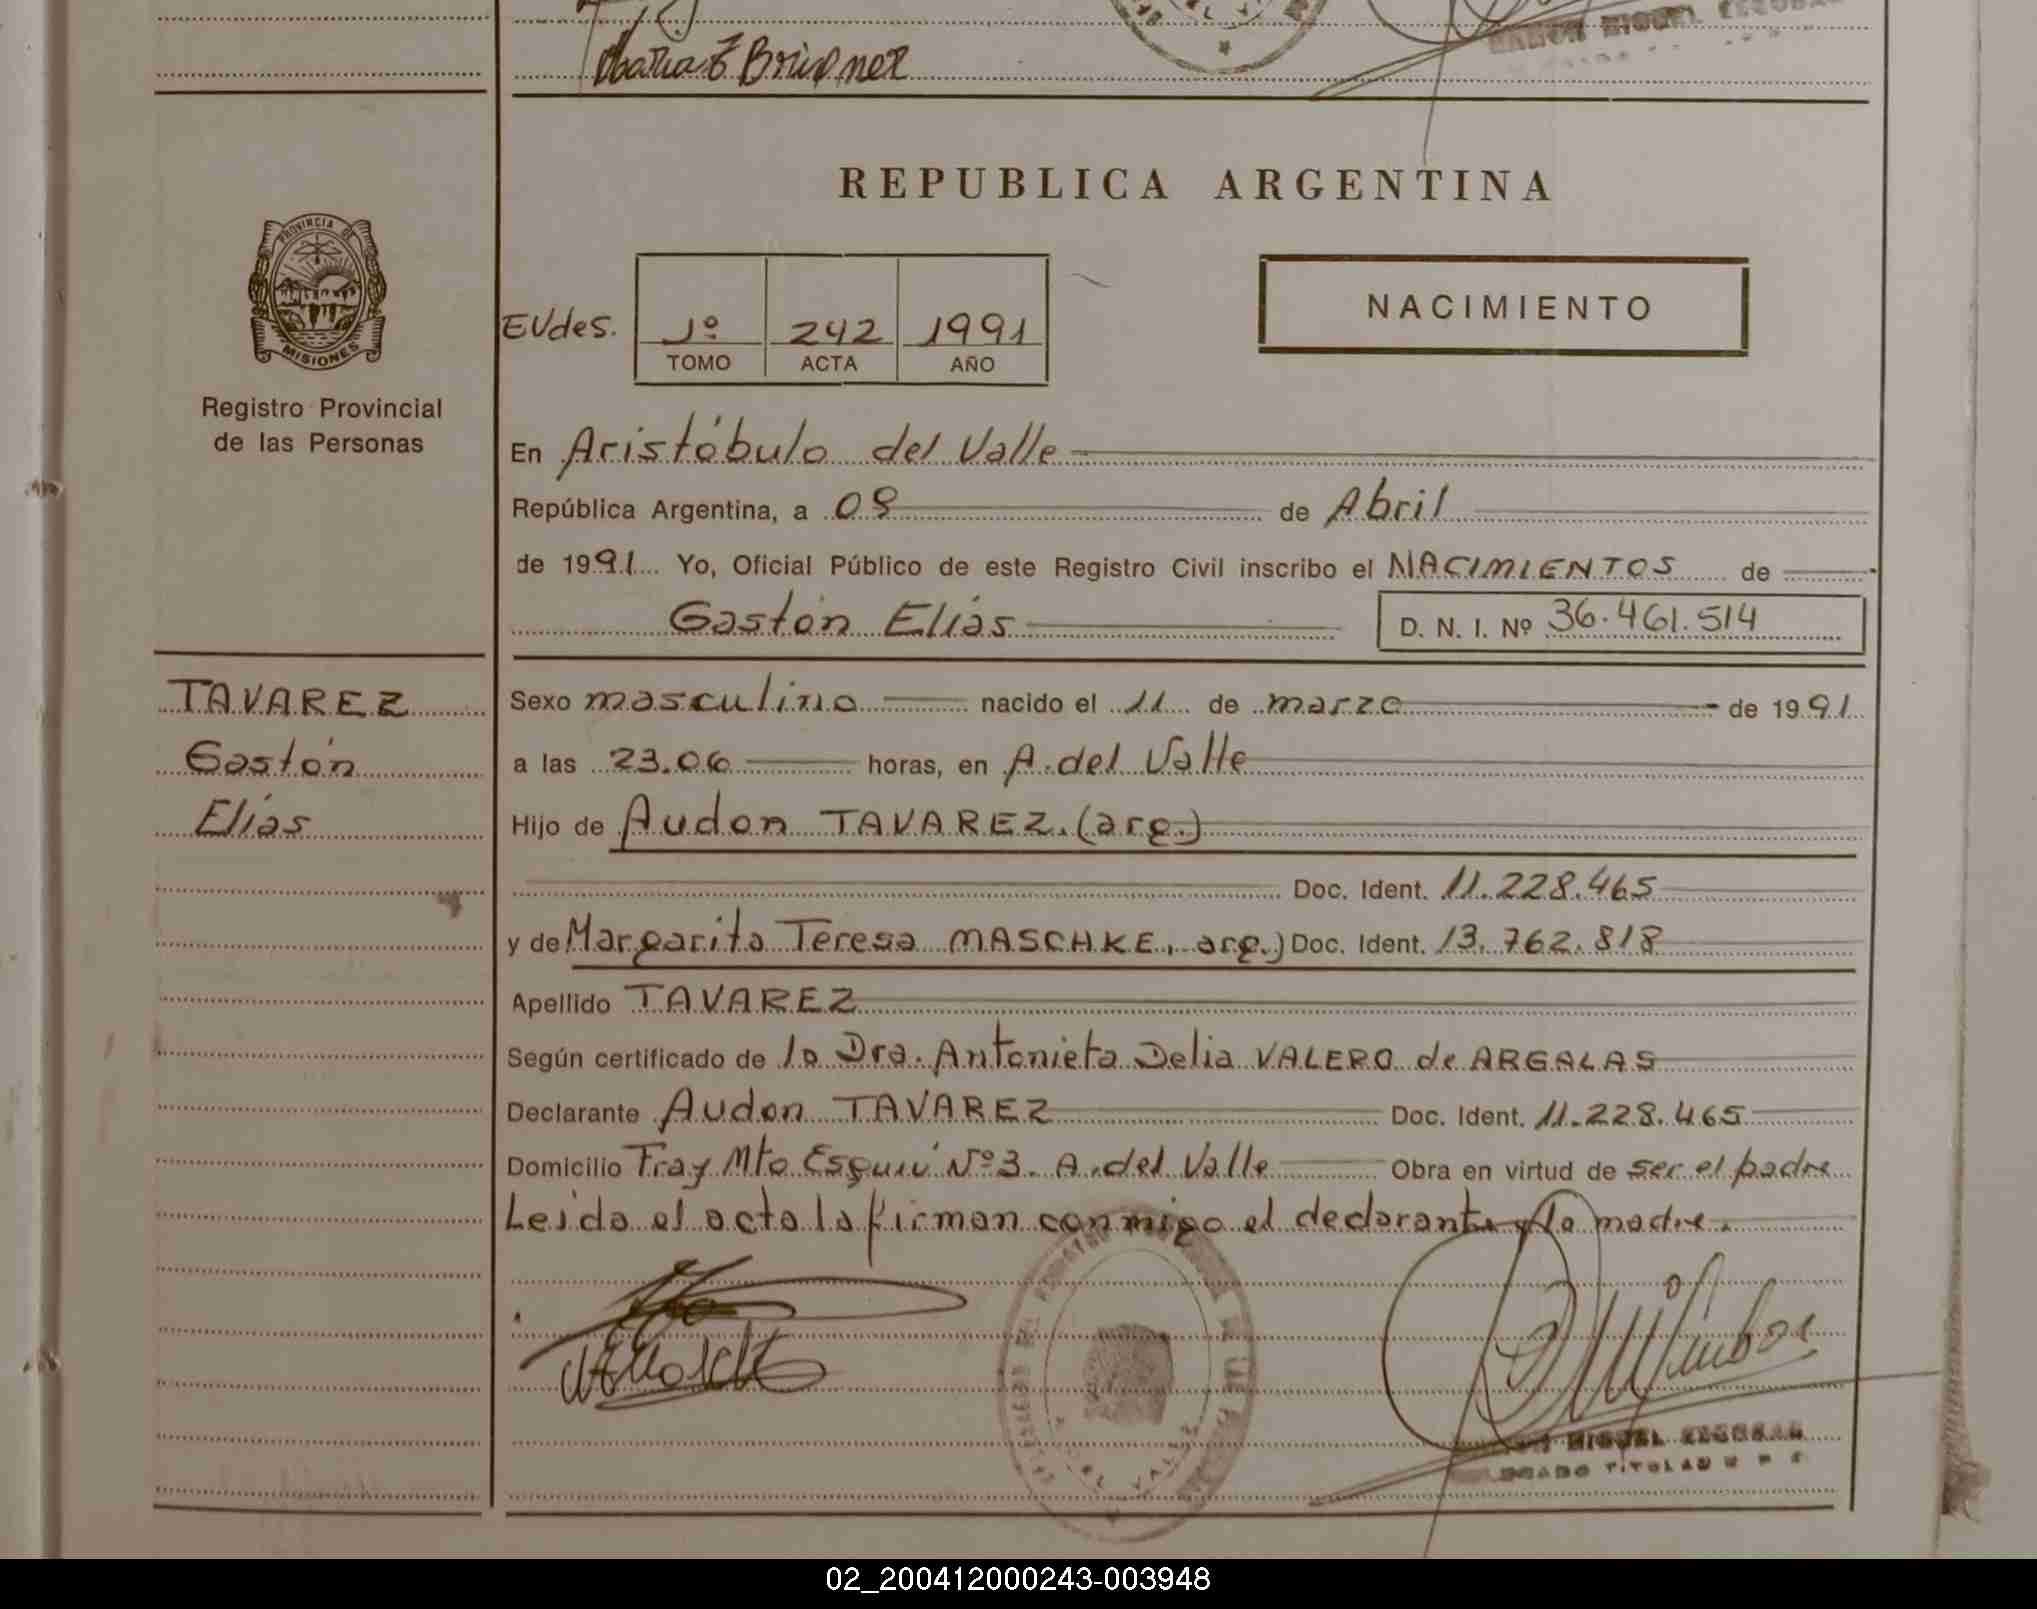 REPUBLICA ARGENTINA
PROVINCIA DE
MISIONES
Registro Provincial
de las Personas
EVdes. 1º 242 1991
TOMO ACTA AÑO
NACIMIENTO
En Aristóbulo del Valle
República Argentina, a 08 de Abril
de 1991 Yo, Oficial Público de este Registro Civil inscribo el NACIMIENTOS de
Gastón Elías D. N. I. Nº 36.461.514
TAVAREZ
Gastón
Elías
Sexo masculino nacido el 11 de marzo de 1991
a las 23.06 horas, en A. del Valle
Hijo de Audon TAVAREZ. (arg.)
Doc. Ident. 11.228.465
y de Margarita Teresa MASCHKE, arg.) Doc. Ident. 13.762.818
Apellido TAVAREZ
Según certificado de la Dra. Antonieta Delia VALERO de ARGALAS
Declarante Audon TAVAREZ Doc. Ident. 11.228.465
Domicilio Fray Mto Esquiú Nº 3. A. del Valle Obra en virtud de ser el padre
Leida el acta la firman conmigo el declarante y la madre.
MIGUEL ESCOBAR
TITULAR
02_200412000243-003948